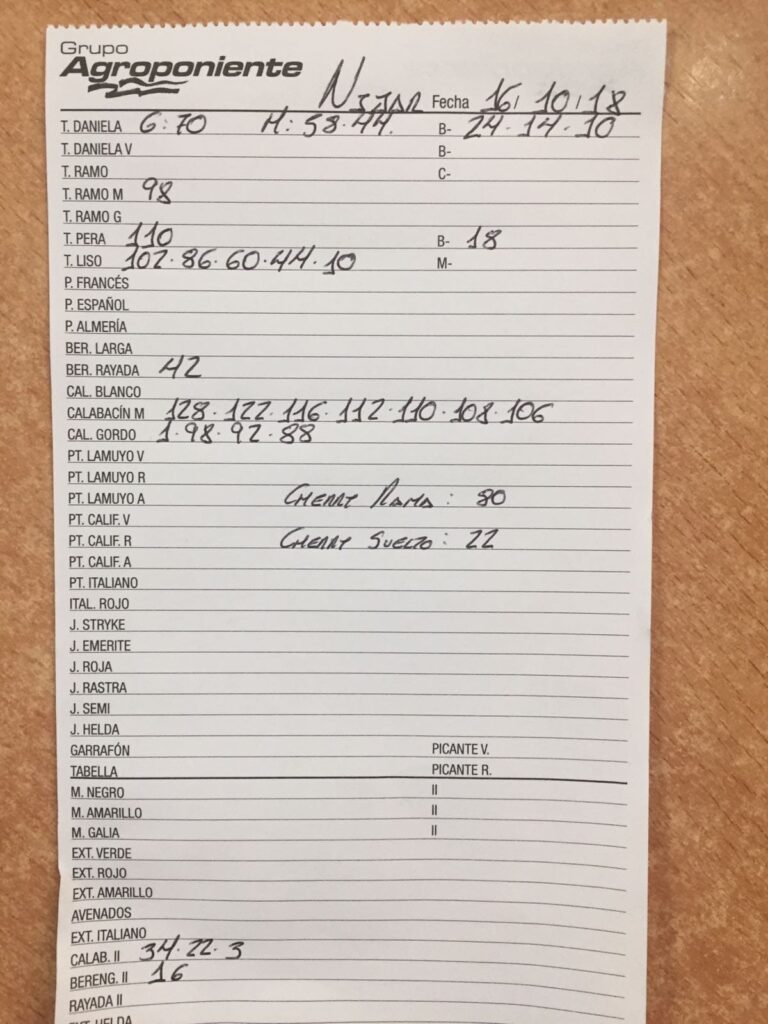 Grupo
Agroponiente
NIJAR Fecha 16/10/18
T. DANELA G:70 M:58.44. B- 24.14.10
T. DANIELA V B-
T. RAMO C-
T. RAMO M 98
T. RAMO G
T. PERA 110 B- 18
T. LISO 102.86.60.44.10 M-
P. FRANCÉS
P. ESPAÑOL
P. ALMERÍA
BER. LARGA
BER. RAYADA 42
CAL. BLANCO
CALABACÍN M 128.122.116.112.110.108.106
CAL. GORDO 1.98.92.88
PT. LAMUYO V
PT. LAMUYO R
PT. LAMUYO A CHERRY RAMA: 80
PT. CALIF. V
PT. CALIF. R CHERRY SUELTO: 22
PT. CALIF. A
PT. ITALIANO
ITAL. ROJO
J. STRYKE
J. EMERITE
J. ROJA
J. RASTRA
J. SEMI
J. HELDA
GARRAFÓN PICANTE V.
TABELLA PICANTE R.
M. NEGRO II
M. AMARILLO II
M. GALIA II
EXT. VERDE
EXT. ROJO
EXT. AMARILLO
AVENADOS
EXT. ITALIANO
CALAB. II 34.22.3
BERENG. II 16
RAYADA II
EXT. HELDA